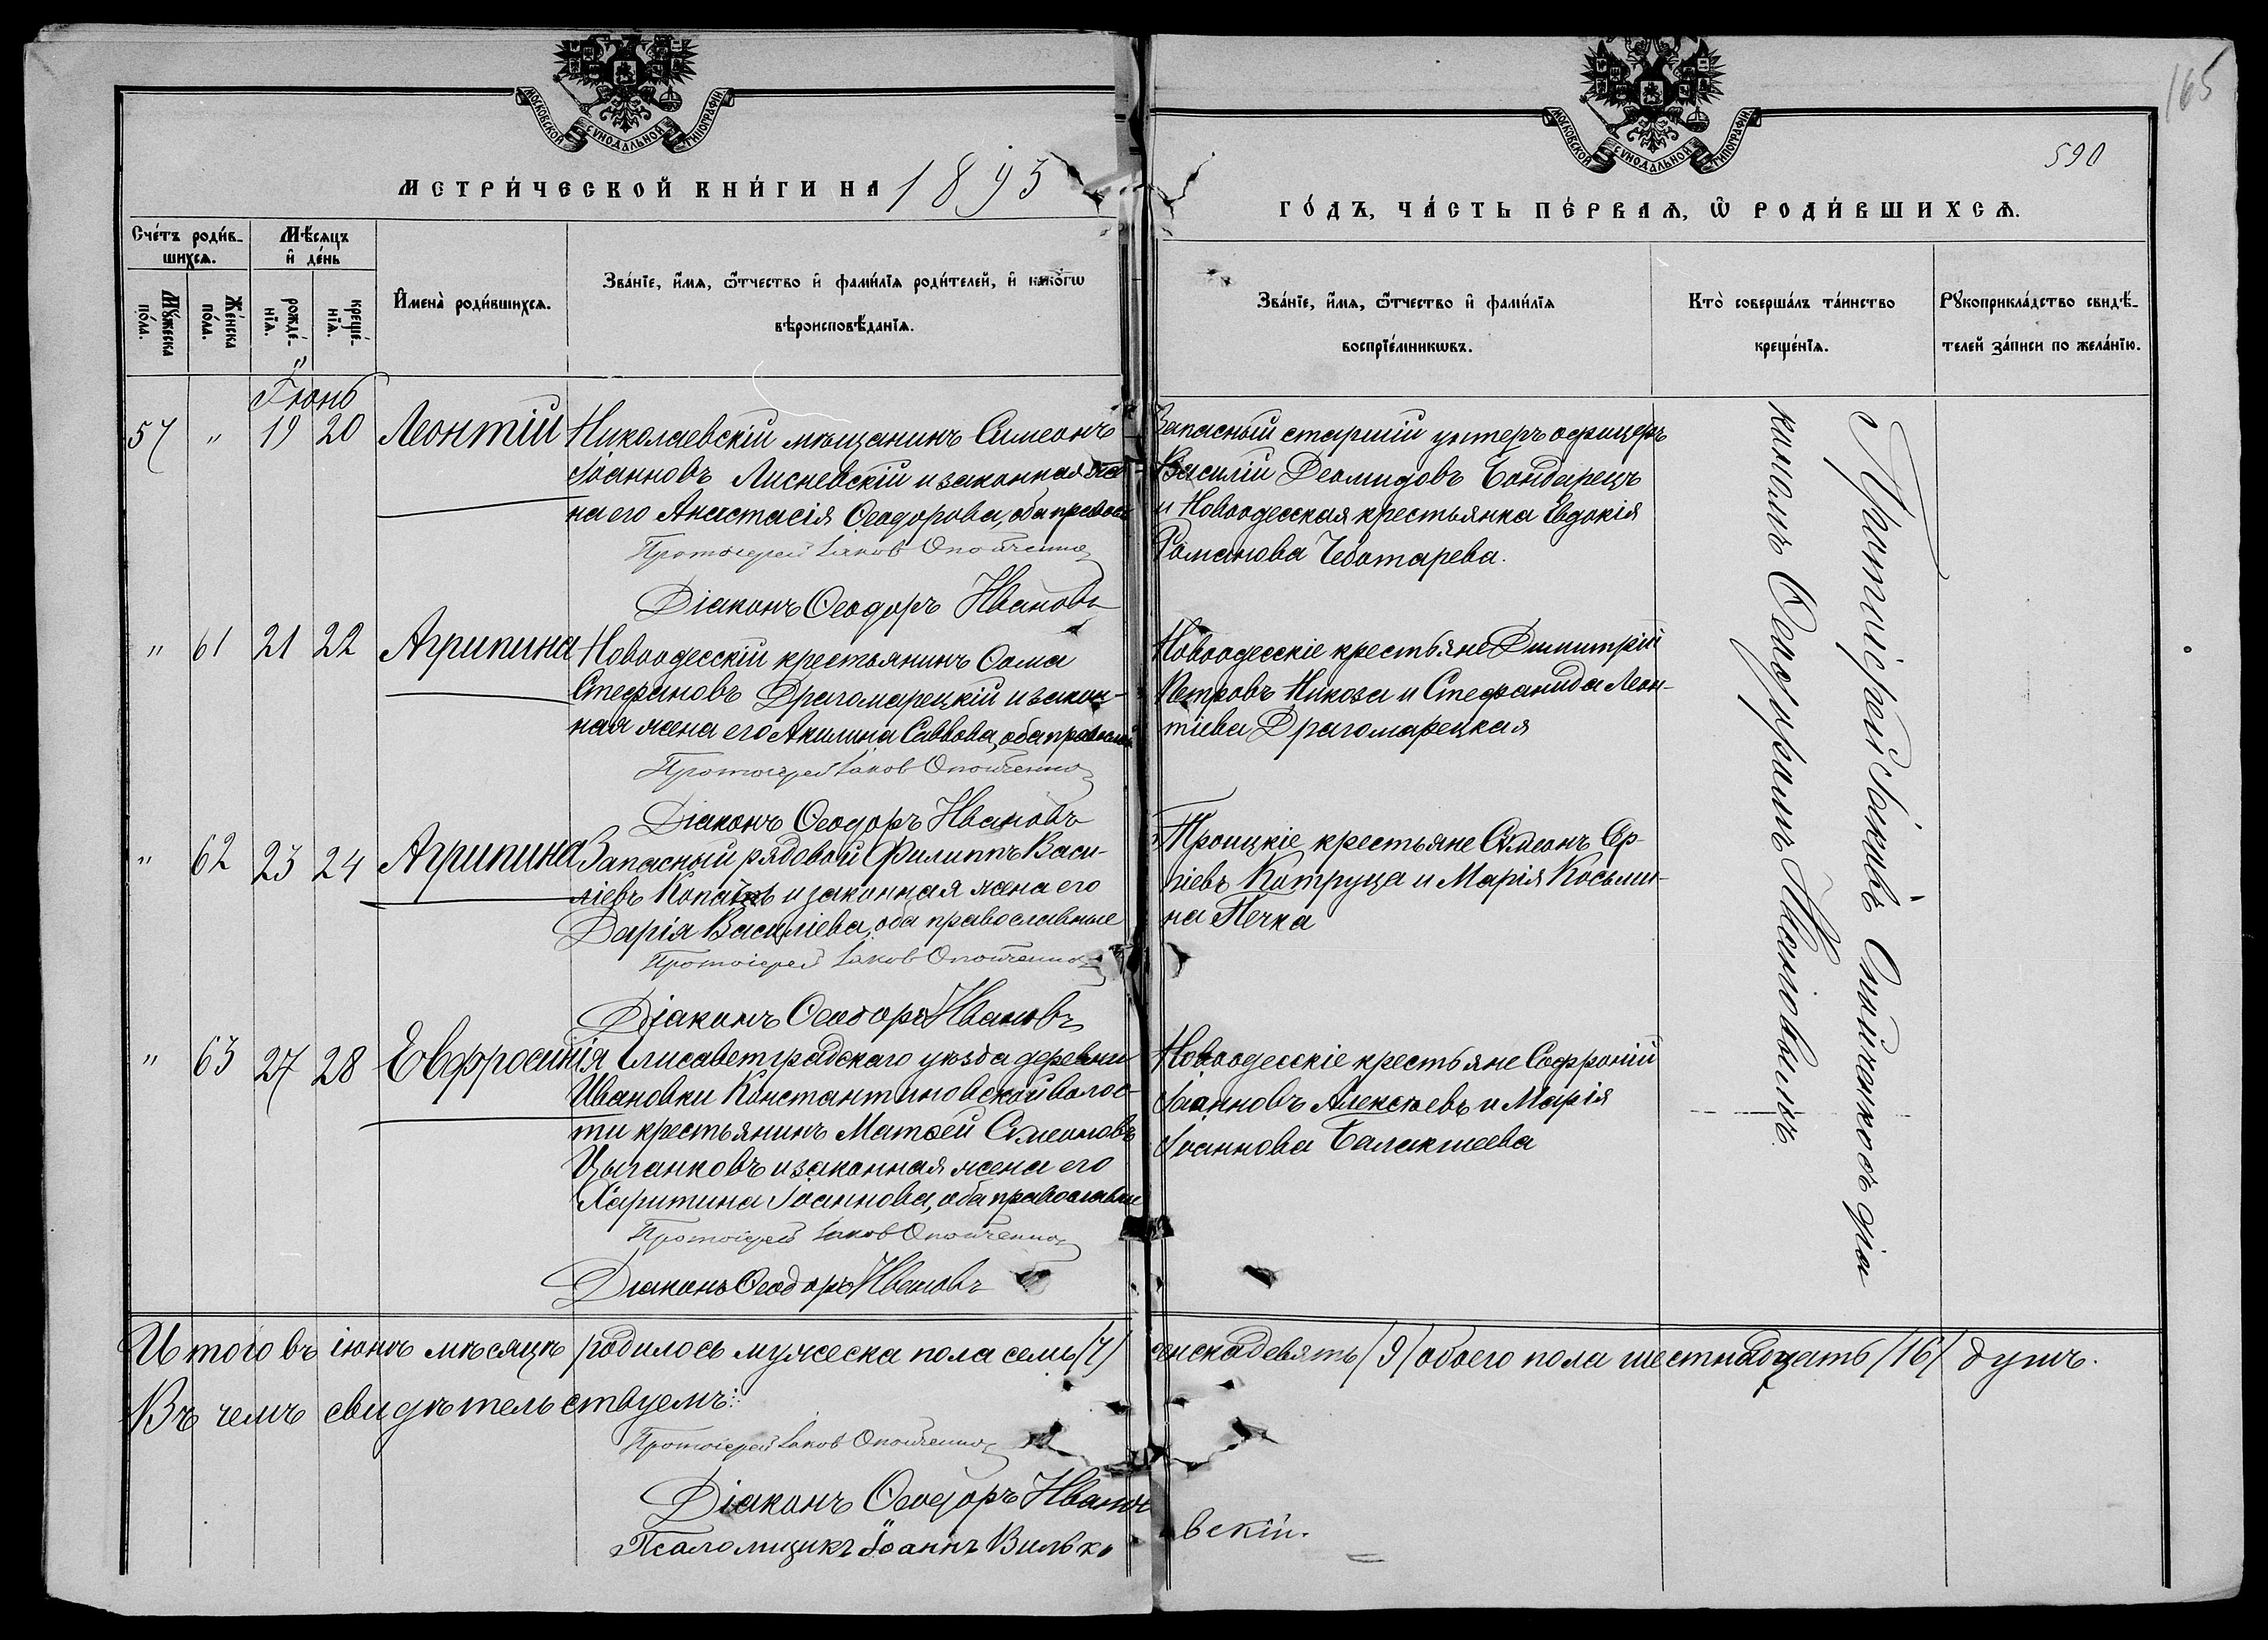 165
590
МОСКОВСКОЙ СѴНОДАЛЬНОЙ ТИПОГРАФІИ
МОСКОВСКОЙ СѴНОДАЛЬНОЙ ТИПОГРАФІИ
МЕТРИ́ЧЕСКОЙ КНИ́ГИ НА 1893
ГО́ДЪ, ЧА́СТЬ ПЕ́РВАѦ, Ѽ РОДИ́ВШИХСѦ.
Сче́тъ роди́в-
шихсѧ.
Мѣ́сѧцъ
и҆ де́нь
Мꙋ́жеска
по́ла.
Же́нска
по́ла.
рожде́-
нїѧ.
креще́-
нїѧ.
И҆мена̀ роди́вшихсѧ.
Зва́нїе, и҆́мѧ, ѻ҆́тчество и҆ фами́лїѧ роди́телей, и҆ како́гѡ
вѣроисповѣ́данїѧ.
Зва́нїе, и҆́мѧ, ѻ҆́тчество и҆ фами́лїѧ
воспрїе́мникѡвъ.
Кто̀ соверша́лъ та́инство
креще́нїѧ.
Рꙋкоприкла́дство свидѣ́-
телей за́писи по жела́нїю.
Іюнь
57 " 19 20 Леонтій
Николаевскій мѣщанинъ Симеонъ
Іоанновъ Лисневскій и законная же-
на его Анастасія Ѳеодорова, оба правосл
Протоіерей Іаков Опойченко
Діаконъ Ѳеодоръ Ивановъ
Запасный старшій унтеръ офицеръ
Василій Деомидовъ Бондарецъ
и Новоодесская крестьянка Евдокія
Романова Чеботарева.
" 61 21 22 Агрипина
Новоодесскій крестьянинъ Ѳома
Стефановъ Драгомарецкій и закон-
ная жена его Акилина Саввова, оба православ
Протоіерей Іаков Опойченко
Діаконъ Ѳеодоръ Ивановъ
Новоодесскіе крестьяне Димитрій
Петровъ Никоза и Стефанида Леон-
тіева Драгомарецкая
" 62 23 24 Агрипина
Запасный рядовой Филиппъ Васи-
ліевъ и законная жена его
Дарія Василіева, оба православные
Протоіерей Іаков Опойченко
Діаконъ Ѳеодоръ Ивановъ
Троицкіе крестьяне Симеонъ Сер-
гіевъ Катруца и Марія Косьми-
на Печка
" 63 27 28 Евфросинія
Елисаветградскаго уѣзда деревни
Ивановки Константиновской волос-
ти крестьянинъ Матѳей Симеоновъ
Цыганковъ и законная жена его
Харитина Іоаннова, оба православные
Протоіерей Іаков Опойченко
Діаконъ Ѳеодоръ Ивановъ
Новоодесскіе крестьяне Софроній
Іоанновъ Алексѣевъ и Марія
Іоаннова Балакшеева
Протоіерей Іаковъ Опойченко съ діа
кономъ Ѳеодоромъ
Итого въ іюнѣ мѣсяцѣ родилось мужеска пола семь /7/ женска девять /9/ обоего пола шестнадцать /16/ душъ.
Въ чемъ свидѣтельствуемъ:
Протоіерей Іаков Опойченко
Діаконъ Ѳеодоръ Ивановъ
Псаломщикъ Іоаннъ Вильховскій.